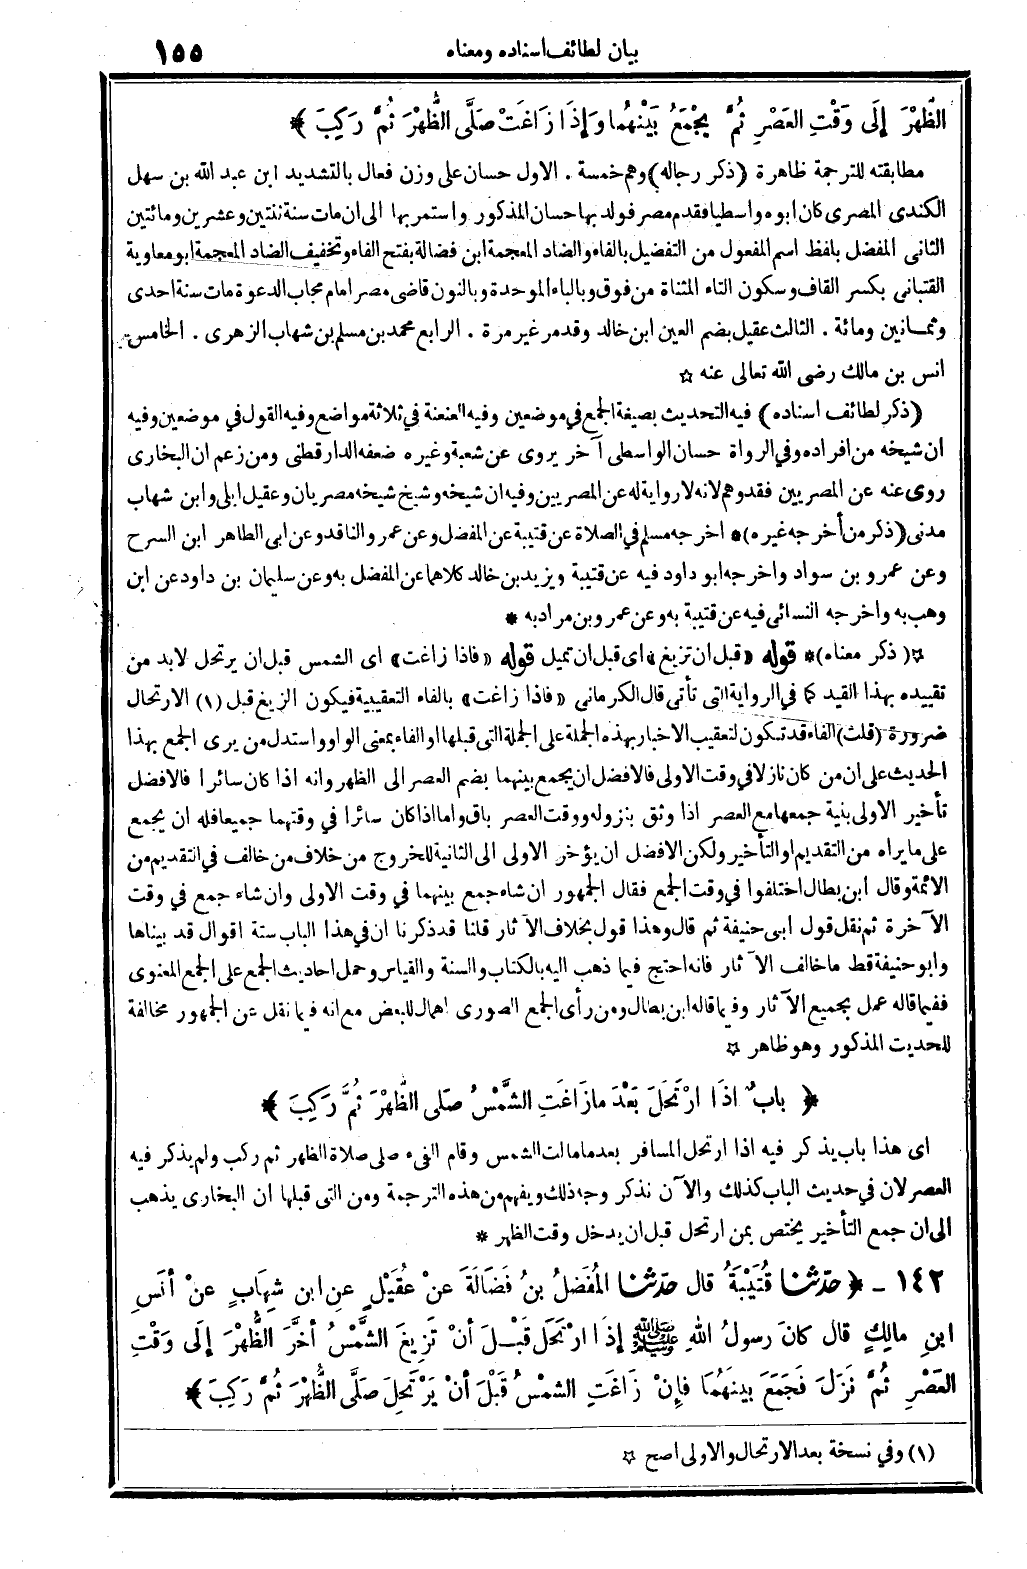 بيان لطائف اسناده ومعناه ١٥٥
الظُّهْرَ إِلَى وَقْتِ العَصْرِ ثُمَّ يَجْمَعُ بَيْنَهُمَا وَإِذَا زَاغَتْ صَلَّى الظُّهْرَ ثُمَّ رَكِبَ ﴾
مطابقته للترجمة ظاهرة (ذكر رجاله) وهم خمسة . الاول حسان على وزن فعال بالتشديد ابن عبد الله بن سهل
الكندى المصرى كان ابوه واسطيا فقدم مصر فولد بها حسان المذكور واستمر بها الى ان مات سنة ثنتين وعشرين ومائتين
الثانى المفضل بلفظ اسم المفعول من التفضيل بالفاء والضاد المعجمة ابن فضالة بفتح الفاء وتخفيف الضاد المعجمة ابو معاوية
القتبانى بكسر القاف وسكون التاء المثناة من فوق وبالباء الموحدة وبالنون قاضى مصر امام مجاب الدعوة مات سنة احدى
وثمانين ومائة . الثالث عقيل بضم العين ابن خالد وقد مر غير مرة . الرابع محمد بن مسلم بن شهاب الزهرى . الخامس
انس بن مالك رضى الله تعالى عنه ☆
(ذكر لطائف اسناده) فيه التحديث بصيغة الجمع في موضعين وفيه العنعنة في ثلاثة مواضع وفيه القول في موضعين وفيه
ان شيخه من افراده وفي الرواة حسان الواسطى آخر يروى عن شعبة وغيره ضعفه الدارقطنى ومن زعم ان البخارى
روى عنه عن المصريين فقد وهم لانه لا رواية له عن المصريين وفيه ان شيخه وشيخ شيخه مصريان وعقيل ايلى وابن شهاب
مدنى (ذكر من أخرجه غيره)* اخرجه مسلم في الصلاة عن قتيبة عن المفضل وعن عمرو الناقد وعن ابى الطاهر ابن السرح
وعن عمرو بن سواد واخرجه ابو داود فيه عن قتيبة ويزيد بن خالد كلاهما عن المفضل به وعن سليمان بن داود عن ابن
وهب به واخرجه النسائى فيه عن قتيبة به وعن عمرو بن مراد به *
☆( ذكر معناه)* قوله «قبل ان تزيغ» اى قبل ان تميل قوله «فاذا زاغت» اى الشمس قبل ان يرتحل لابد من
تقييده بهذا القيد كما في الرواية التى تأتى قال الكرمانى «فاذا زاغت» بالفاء التعقيبية فيكون الزيغ قبل (١) الارتحال
ضرورة (قلت) الفاء قد تكون لتعقيب الاخبار بهذه الجملة على الجملة التى قبلها او الفاء بمعنى الواو واستدل من يرى الجمع بهذا
الحديث على ان من كان نازلا في وقت الاولى فالافضل ان يجمع بينهما بضم العصر الى الظهر وانه اذا كان سائرا فالافضل
تأخير الاولى بنية جمعها مع العصر اذا وثق بنزوله ووقت العصر باق واما اذا كان سائرا في وقتهما جميعا فله ان يجمع
على ما يراه من التقديم او التأخير ولكن الافضل ان يؤخر الاولى الى الثانية للخروج من خلاف من خالف في التقديم من
الائمة وقال ابن بطال اختلفوا في وقت الجمع فقال الجمهور ان شاء جمع بينهما في وقت الاولى وان شاء جمع في وقت
الآخرة ثم نقل قول ابى حنيفة ثم قال وهذا قول بخلاف الآثار قلنا قد ذكرنا ان في هذا الباب ستة اقوال قد بيناها
وابو حنيفة قط ما خالف الآثار فانه احتج فيما ذهب اليه بالكتاب والسنة والقياس وحمل احاديث الجمع على الجمع المعنوى
ففيما قاله عمل بجميع الآثار وفيما قاله ابن بطال ومن رأى الجمع الصورى اهمال للبعض مع انه فيما نقل عن الجمهور مخالفة
للحديث المذكور وهو ظاهر ☆
﴿ بابٌ اذَا ارْتَحَلَ بَعْدَ ما زَاغَتِ الشَّمْسُ صَلى الظُّهْرَ ثُمَّ رَكِبَ ﴾
اى هذا باب يذكر فيه اذا ارتحل المسافر بعد ما مالت الشمس وقام الفىء صلى صلاة الظهر ثم ركب ولم يذكر فيه
العصر لان في حديث الباب كذلك والآن نذكر وجه ذلك ويفهم من هذه الترجمة ومن التى قبلها ان البخارى يذهب
الى ان جمع التأخير يختص بمن ارتحل قبل ان يدخل وقت الظهر *
١٤٢ - ﴿ حدّثنا قُتَيْبَةُ قال حدّثنا المُفَضلُ بنُ فَضَالَةَ عَنْ عُقَيْلٍ عنِ ابن شِهَابٍ عنْ أنَسِ
ابنِ مالِكٍ قال كانَ رسولُ اللهِ ﷺ إذَا ارْتَحَلَ قَبْلَ أنْ تَزِيغَ الشَّمْسُ أخَّرَ الظُّهْرَ إلَى وَقْتِ
العَصْرِ ثُمَّ نَزَلَ فَجَمَعَ بينَهُمَا فإنْ زَاغَتِ الشمْسُ قَبْلَ أنْ يَرْتَحِلَ صَلَّى الظُّهْرَ ثُمَّ رَكِبَ ﴾
(١) وفي نسخة بعد الارتحال والاولى اصح ☆